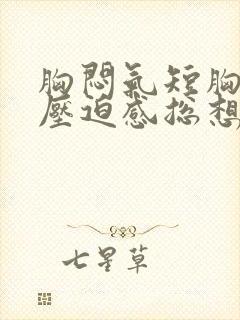 胸悶氣短胸
壓迫感總想
七星草